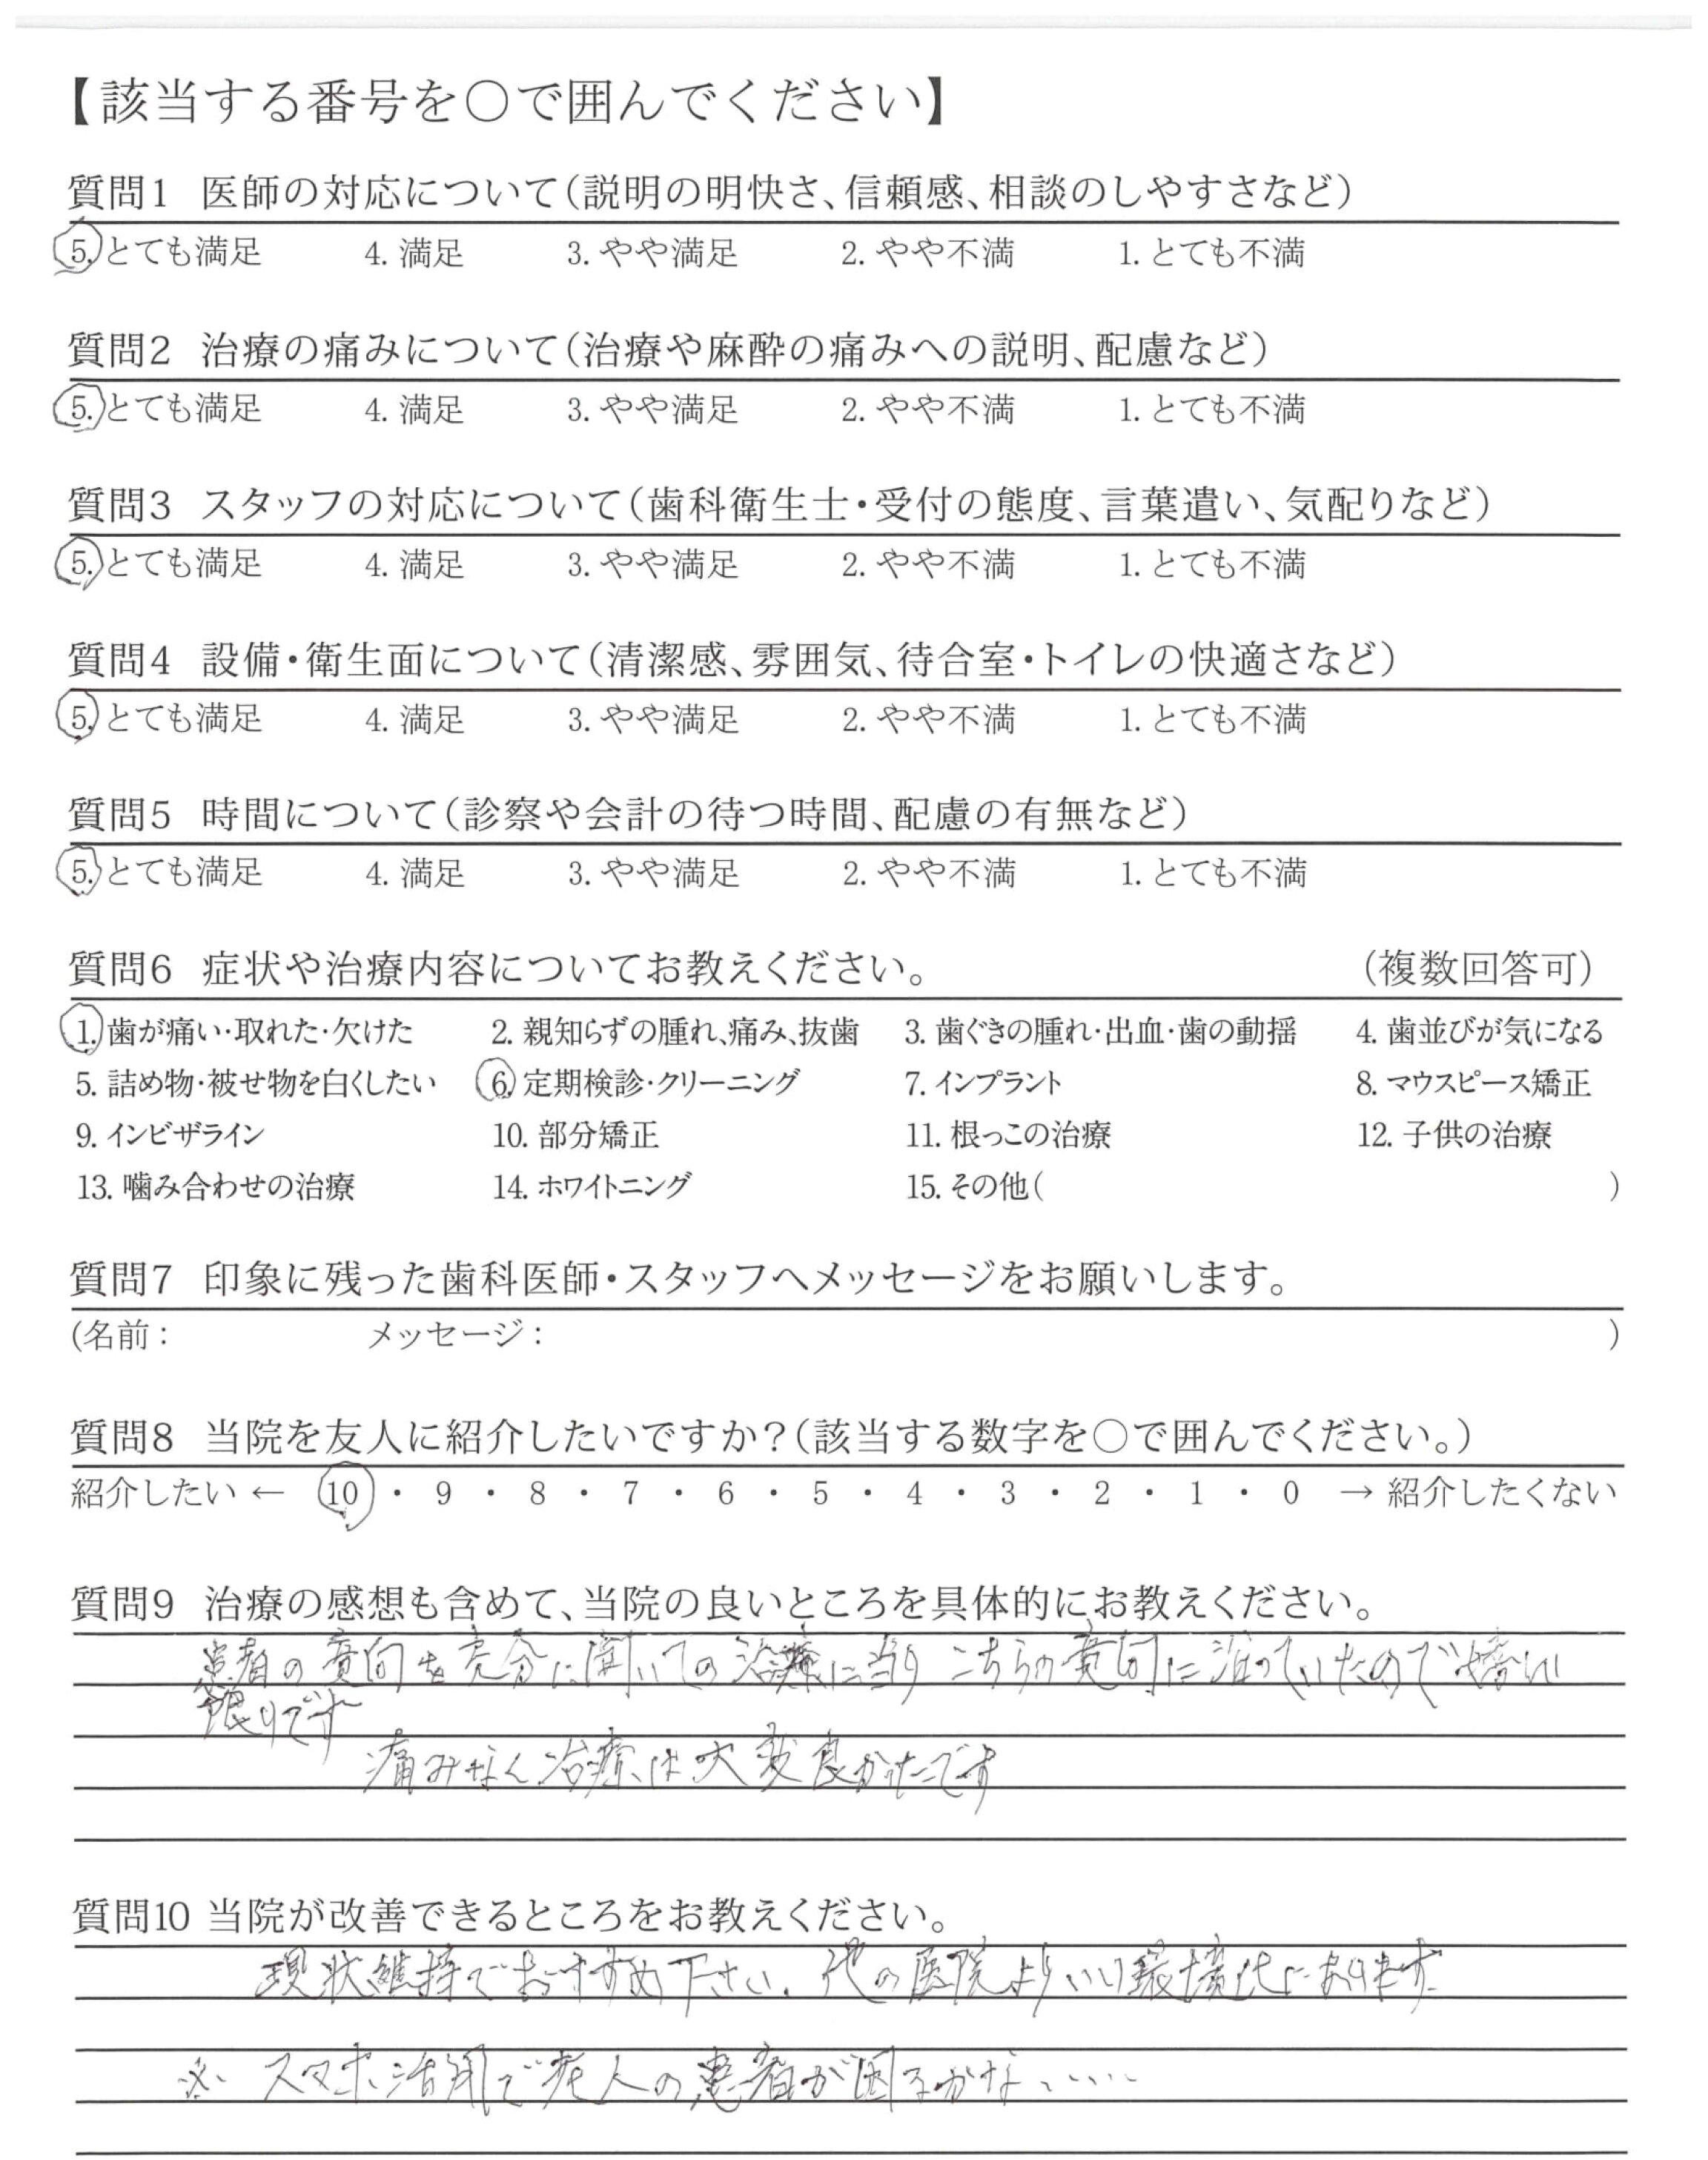 【該当する番号を〇で囲んでください】
質問1 医師の対応について(説明の明快さ、信頼感、相談のしやすさなど)
5. とても満足 4. 満足 3. やや満足 2. やや不満 1. とても不満
質問2 治療の痛みについて(治療や麻酔の痛みへの説明、配慮など)
5. とても満足 4. 満足 3. やや満足 2. やや不満 1. とても不満
質問3 スタッフの対応について(歯科衛生士・受付の態度、言葉遣い、気配りなど)
5. とても満足 4. 満足 3. やや満足 2. やや不満 1. とても不満
質問4 設備・衛生面について(清潔感、雰囲気、待合室・トイレの快適さなど)
5. とても満足 4. 満足 3. やや満足 2. やや不満 1. とても不満
質問5 時間について(診察や会計の待つ時間、配慮の有無など)
5. とても満足 4. 満足 3. やや満足 2. やや不満 1. とても不満
質問6 症状や治療内容についてお教えください。 (複数回答可)
1. 歯が痛い・取れた・欠けた 2. 親知らずの腫れ、痛み、抜歯 3. 歯ぐきの腫れ・出血・歯の動揺 4. 歯並びが気になる
5. 詰め物・被せ物を白くしたい 6. 定期検診・クリーニング 7. インプラント 8. マウスピース矯正
9. インビザライン 10. 部分矯正 11. 根っこの治療 12. 子供の治療
13. 噛み合わせの治療 14. ホワイトニング 15. その他( )
質問7 印象に残った歯科医師・スタッフへメッセージをお願いします。
(名前: メッセージ: )
質問8 当院を友人に紹介したいですか?(該当する数字を〇で囲んでください。)
紹介したい ← 10 ・ 9 ・ 8 ・ 7 ・ 6 ・ 5 ・ 4 ・ 3 ・ 2 ・ 1 ・ 0 → 紹介したくない
質問9 治療の感想も含めて、当院の良いところを具体的にお教えください。
患者の意向を充分に聞いての治療に当り こちらの意向に沿っていたので嬉しい
限りです
痛みなく治療は大変良かったです
質問10 当院が改善できるところをお教えください。
現状維持でおすすめ下さい. 他の医院よりいい環境にあります.
※ スマホ活用で老人の患者が困るかな、、、、、